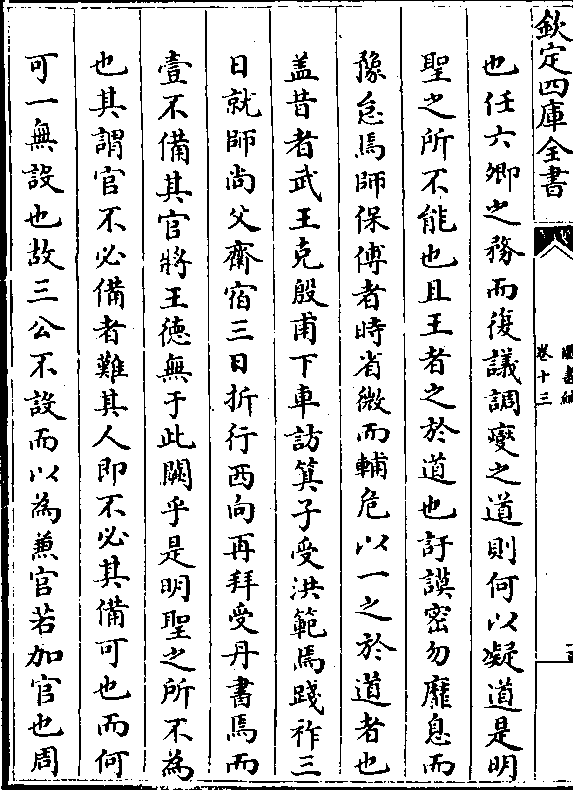 欽定四庫全書
卷十三
也任六卿之務而復議調燮之道則何以凝道是明
聖之所不能也且王者之於道也訏謨密勿靡息而
豫怠焉師保傅者時省微而輔危以一之於道者也
盖昔者武王克殷甫下車訪箕子受洪範焉踐祚三
日就師尚父齋宿三日折行西向再拜受丹書焉而
壹不備其官將王德無于此闕乎是明聖之所不為
也其謂官不必備者難其人即不必其備可也而何
可一無設也故三公不設而以為兼官若加官也周